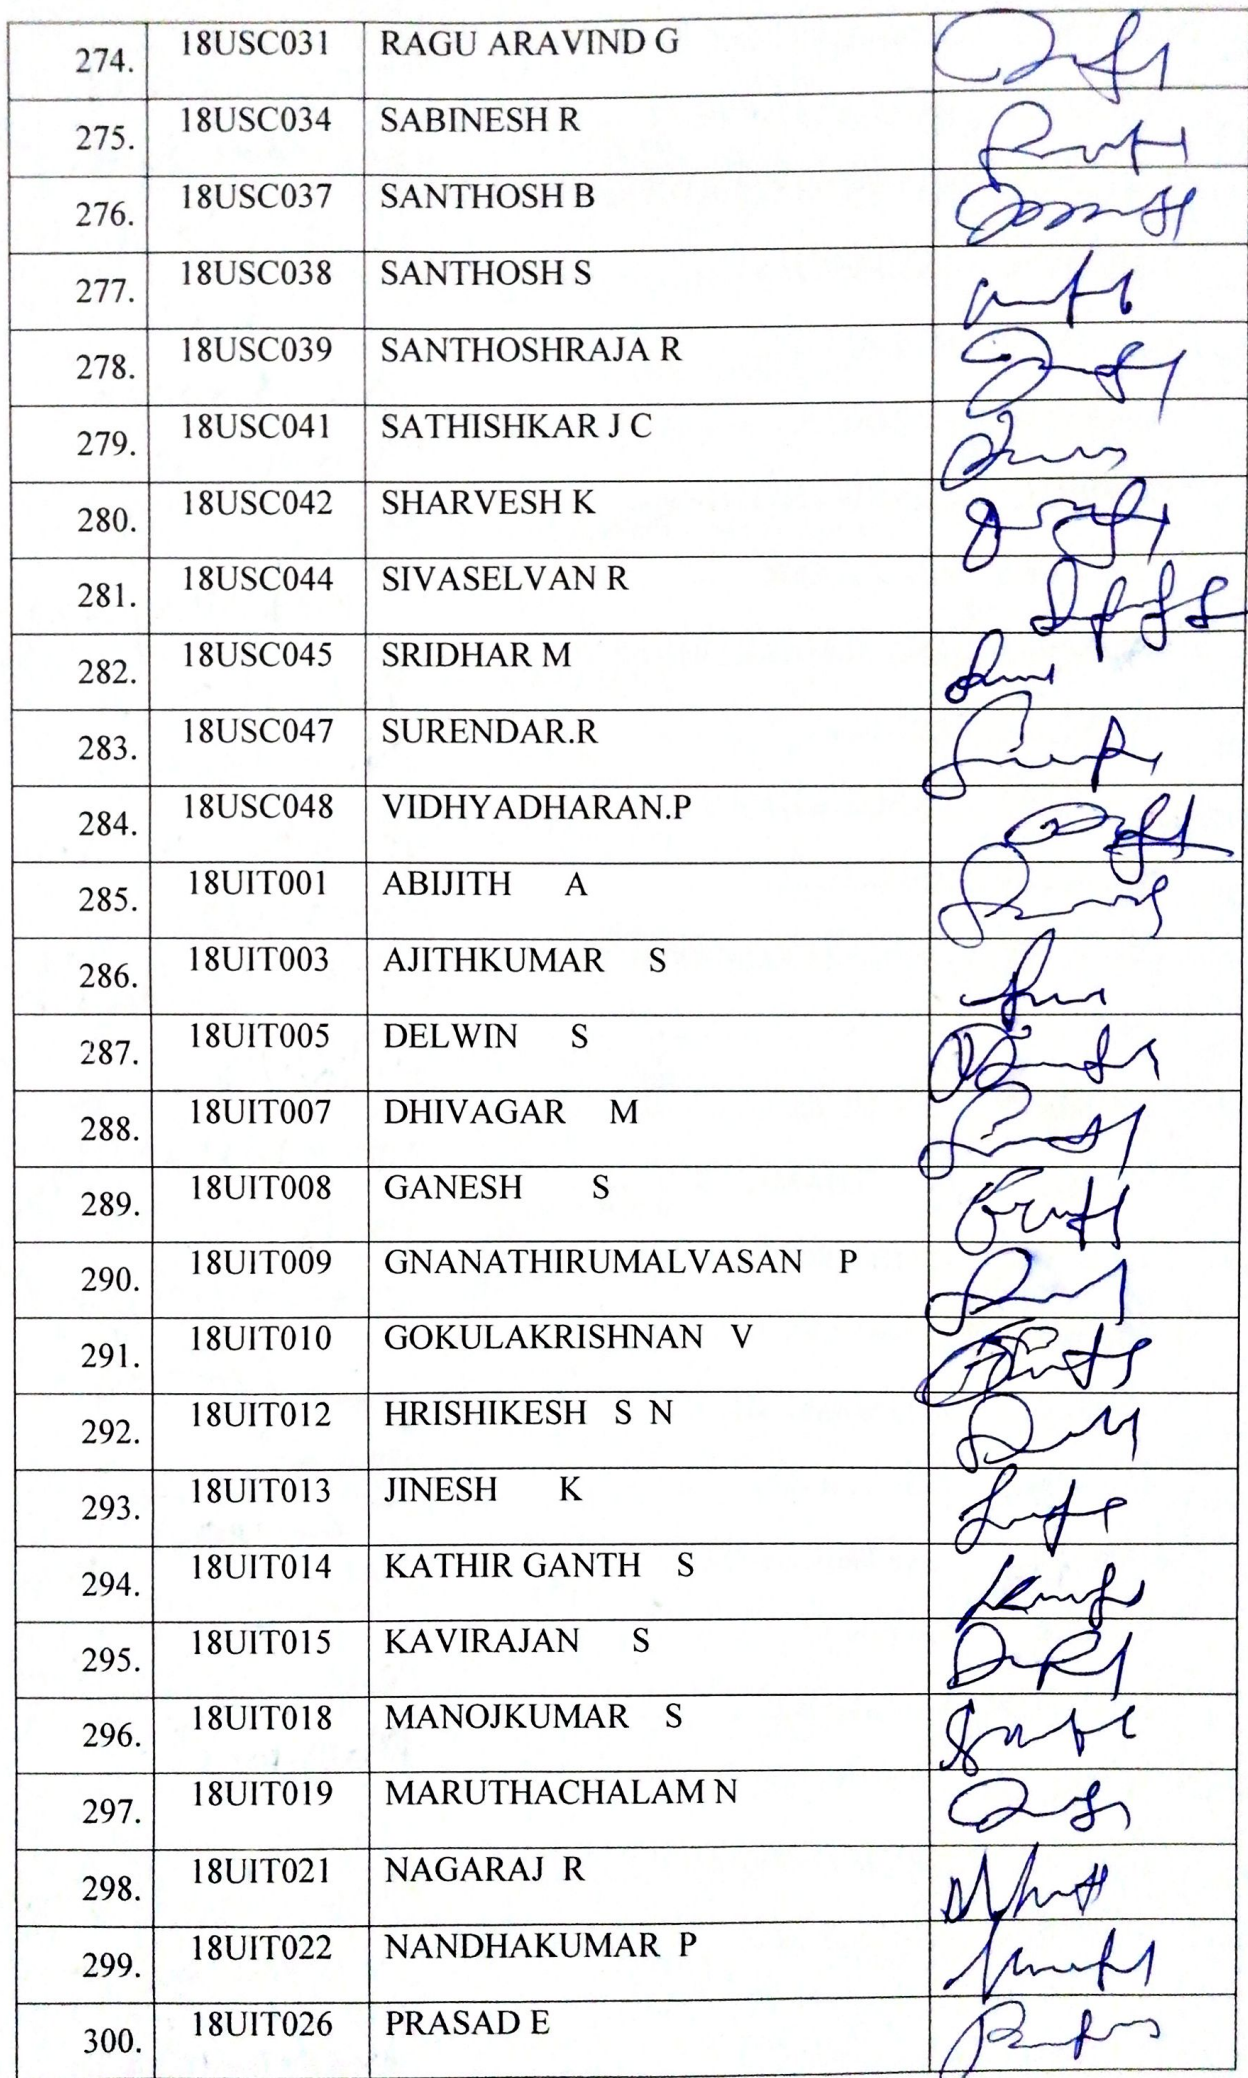 274. 18USC031 RAGU ARAVIND G
275. 18USC034 SABINESH R
276. 18USC037 SANTHOSH B
277. 18USC038 SANTHOSH S
278. 18USC039 SANTHOSHRAJA R
279. 18USC041 SATHISHKAR J C
280. 18USC042 SHARVESH K
281. 18USC044 SIVASELVAN R
282. 18USC045 SRIDHAR M
283. 18USC047 SURENDAR.R
284. 18USC048 VIDHYADHARAN.P
285. 18UIT001 ABIJITH A
286. 18UIT003 AJITHKUMAR S
287. 18UIT005 DELWIN S
288. 18UIT007 DHIVAGAR M
289. 18UIT008 GANESH S
290. 18UIT009 GNANATHIRUMALVASAN P
291. 18UIT010 GOKULAKRISHNAN V
292. 18UIT012 HRISHIKESH S N
293. 18UIT013 JINESH K
294. 18UIT014 KATHIR GANTH S
295. 18UIT015 KAVIRAJAN S
296. 18UIT018 MANOJKUMAR S
297. 18UIT019 MARUTHACHALAM N
298. 18UIT021 NAGARAJ R
299. 18UIT022 NANDHAKUMAR P
300. 18UIT026 PRASAD E